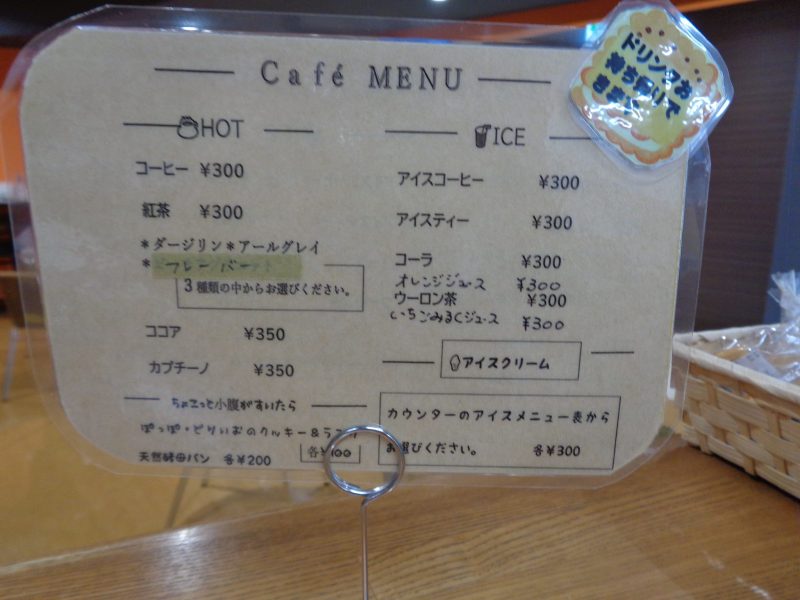 Café MENU
ドリンクお
持ち帰りで
きます
HOT
コーヒー ¥300
紅茶 ¥300
*ダージリン*アールグレイ
*フレーバー
3種類の中からお選びください。
ココア ¥350
カプチーノ ¥350
ちょこっと小腹がすいたら
ぽっぽ・どりいむのクッキー&ラスク
各¥100
天然酵母パン 各¥200
ICE
アイスコーヒー ¥300
アイスティー ¥300
コーラ ¥300
オレンジジュース ¥300
ウーロン茶 ¥300
いちごみるくジュース ¥300
アイスクリーム
カウンターのアイスメニュー表から
お選びください。 各¥300